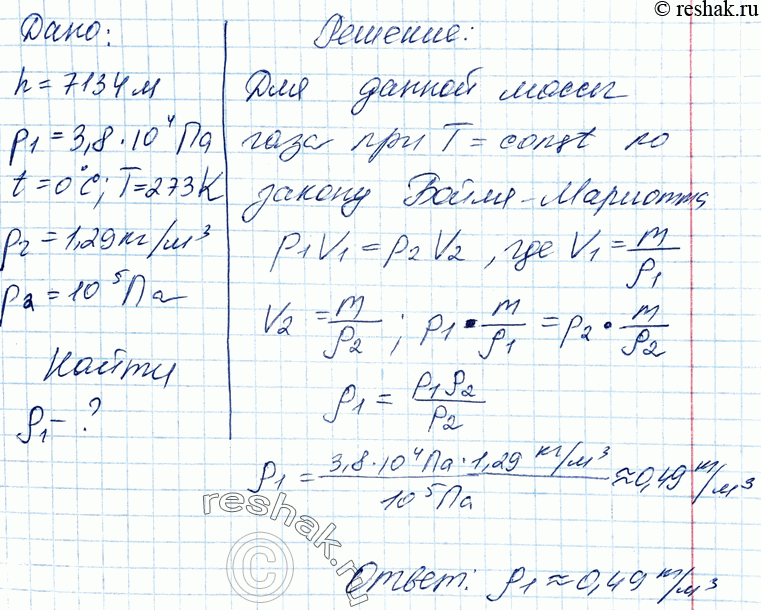 reshak.ru
Дано:
h = 7134 м
p1 = 3,8 · 10⁴ Па
t = 0°C; T = 273 K
ρ2 = 1,29 кг/м³
p2 = 10⁵ Па
Найти
ρ1 - ?
Решение:
Для данной массы
газа при T = const по
закону Бойля-Мариотта
p1V1 = p2V2, где V1 = m/ρ1
V2 = m/ρ2; p1 · m/ρ1 = p2 · m/ρ2
ρ1 = p1ρ2/p2
ρ1 = 3,8 · 10⁴ Па · 1,29 кг/м³ / 10⁵ Па ≈ 0,49 кг/м³
Ответ: ρ1 ≈ 0,49 кг/м³
reshak.ru
©